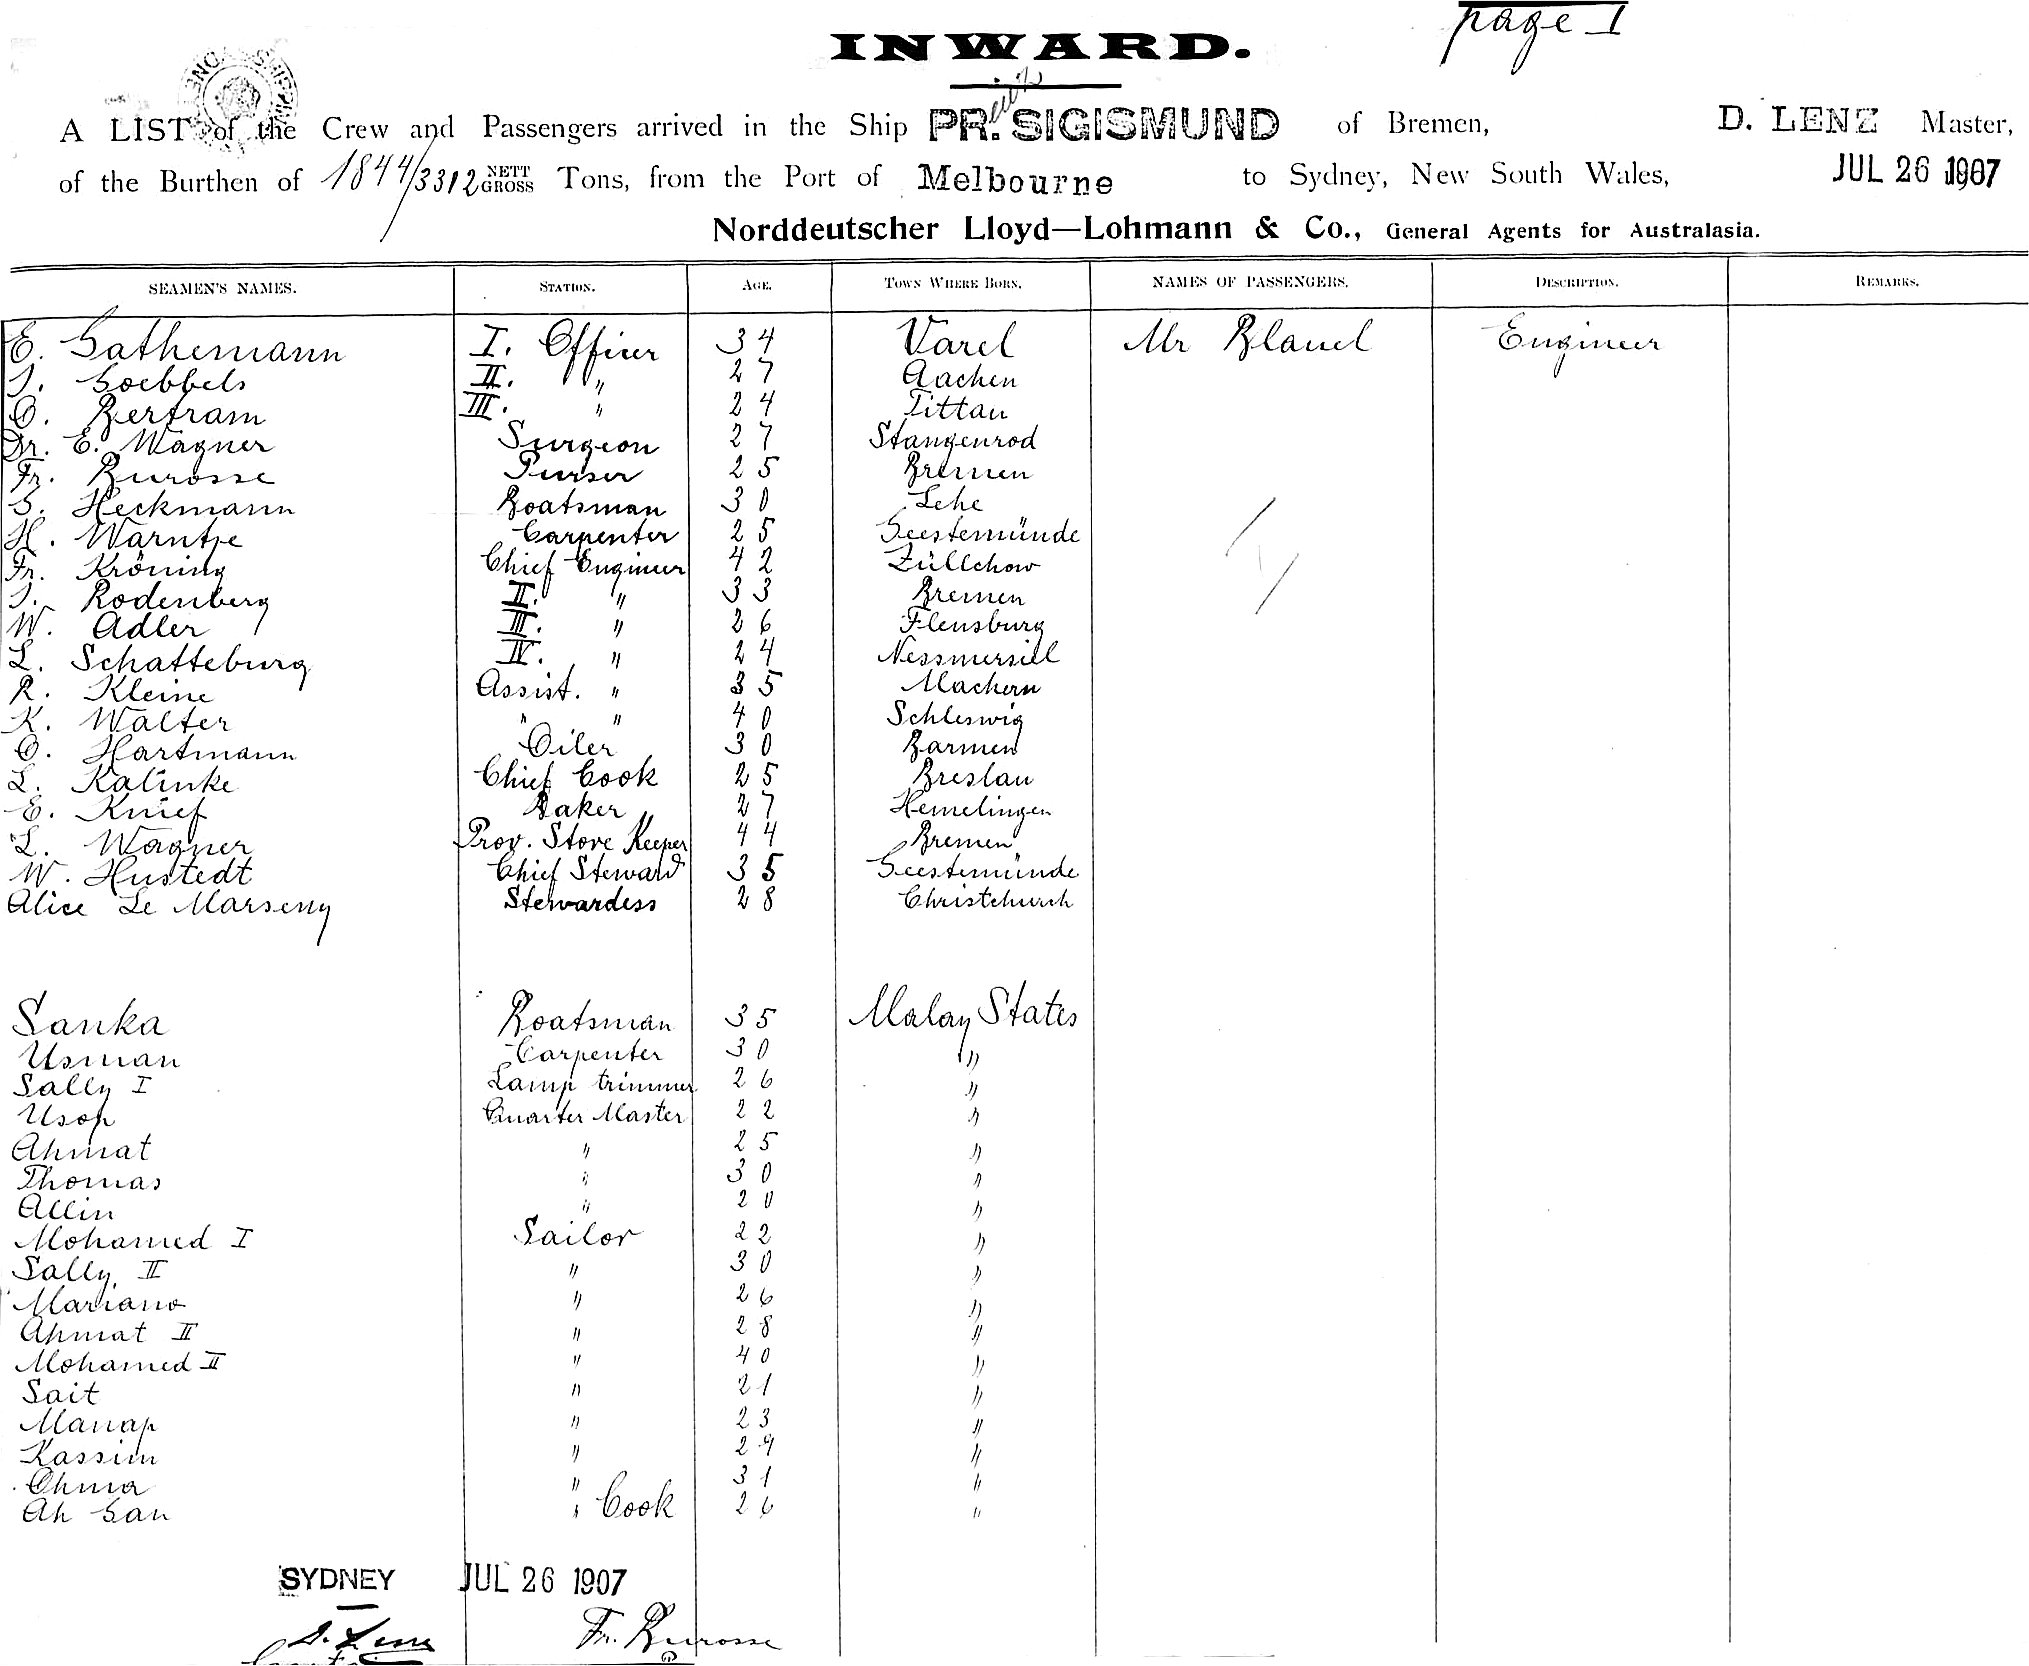 page I
INWARD.
A LIST of the Crew and Passengers arrived in the Ship PR. SIGISMUND of Bremen, D. LENZ Master,
of the Burthen of 1844/3312 NETT GROSS Tons, from the Port of Melbourne to Sydney, New South Wales, JUL 26 1907
Norddeutscher Lloyd—Lohmann & Co., General Agents for Australasia.
SEAMEN'S NAMES. STATION. AGE. TOWN WHERE BORN. NAMES OF PASSENGERS. DESCRIPTION. REMARKS.
E. Gathemann I. Officer 34 Varel Mr Blauel Engineer
J. Goebbels II. " 27 Aachen
O. Bertram III. " 24 Zittau
Dr. E. Wagner Surgeon 27 Stangenrod
Fr. Burosse Purser 25 Bremen
G. Heckmann Boatsman 30 Lehe
H. Warntje Carpenter 25 Geestemünde
Fr. Kröning Chief Engineer 42 Züllchow
J. Rodenberg II. " 33 Bremen
W. Adler III. " 26 Flensburg
L. Schatteburg IV. " 24 Nessmersiel
R. Kleine Assist. " 35 Machern
K. Walter " " 40 Schleswig
O. Hartmann Oiler 30 Barmen
L. Kalinke Chief Cook 25 Breslau
E. Knief Baker 27 Hemelingen
L. Wagner Prov. Store Keeper 44 Bremen
W. Hustedt Chief Steward 35 Geestemünde
Alice Le Marseny Stewardess 28 Christchurch
Sanka Boatsman 35 Malay States
Usman Carpenter 30 "
Sally I Lamp trimmer 26 "
Usop Quarter Master 22 "
Ahmat " 25 "
Thomas " 30 "
Allin " 20 "
Mohamed I Sailor 22 "
Sally II " 30 "
Mariano " 26 "
Ahmat II " 28 "
Mohamed II " 40 "
Sait " 21 "
Manap " 23 "
Kassim " 29 "
Ohma " 31 "
Ah San " Cook 26 "
SYDNEY JUL 26 1907
D. Lenz Fr. Burosse